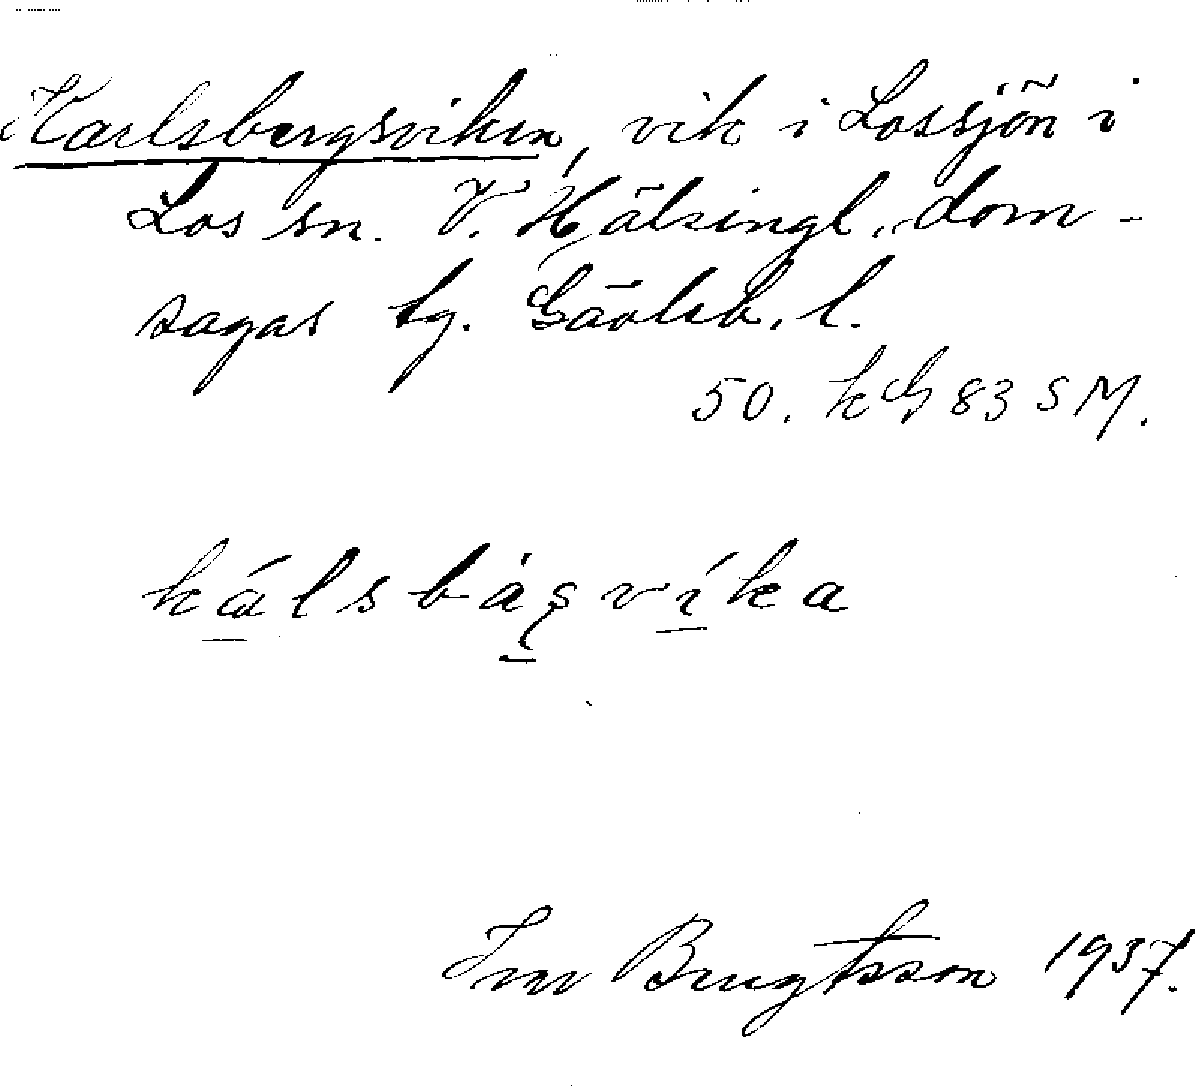 Karlsbergsviken, vik i Lossjön i
Los sn. V. Hälsingl. dom-
sagas tg. Gävleb. l.
50. k G 83 S M.
kálsbágvíka
Bengtsson 1937.